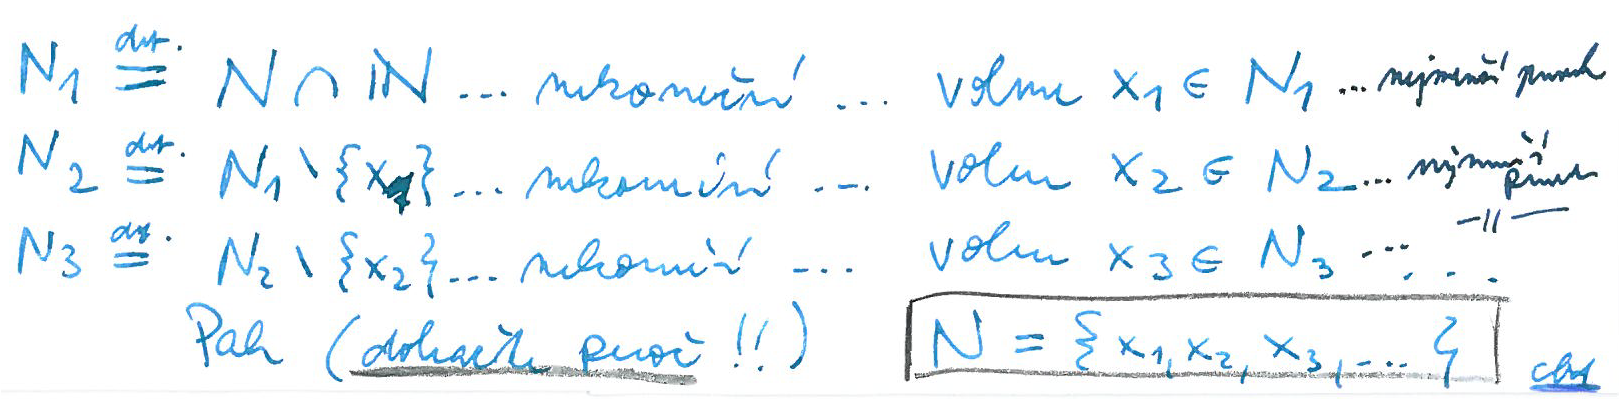 N₁ def. = N ∩ ℕ ... nekonečná ... volme x₁ ∈ N₁ ... nejmenší prvek
N₂ def. = N₁ \ {x₁} ... nekonečná ... volme x₂ ∈ N₂ ... nejmenší prvek
N₃ def. = N₂ \ {x₂} ... nekonečná ... volme x₃ ∈ N₃ ... —||—
Pak (dokažte proč!!) N = {x₁, x₂, x₃, ...}